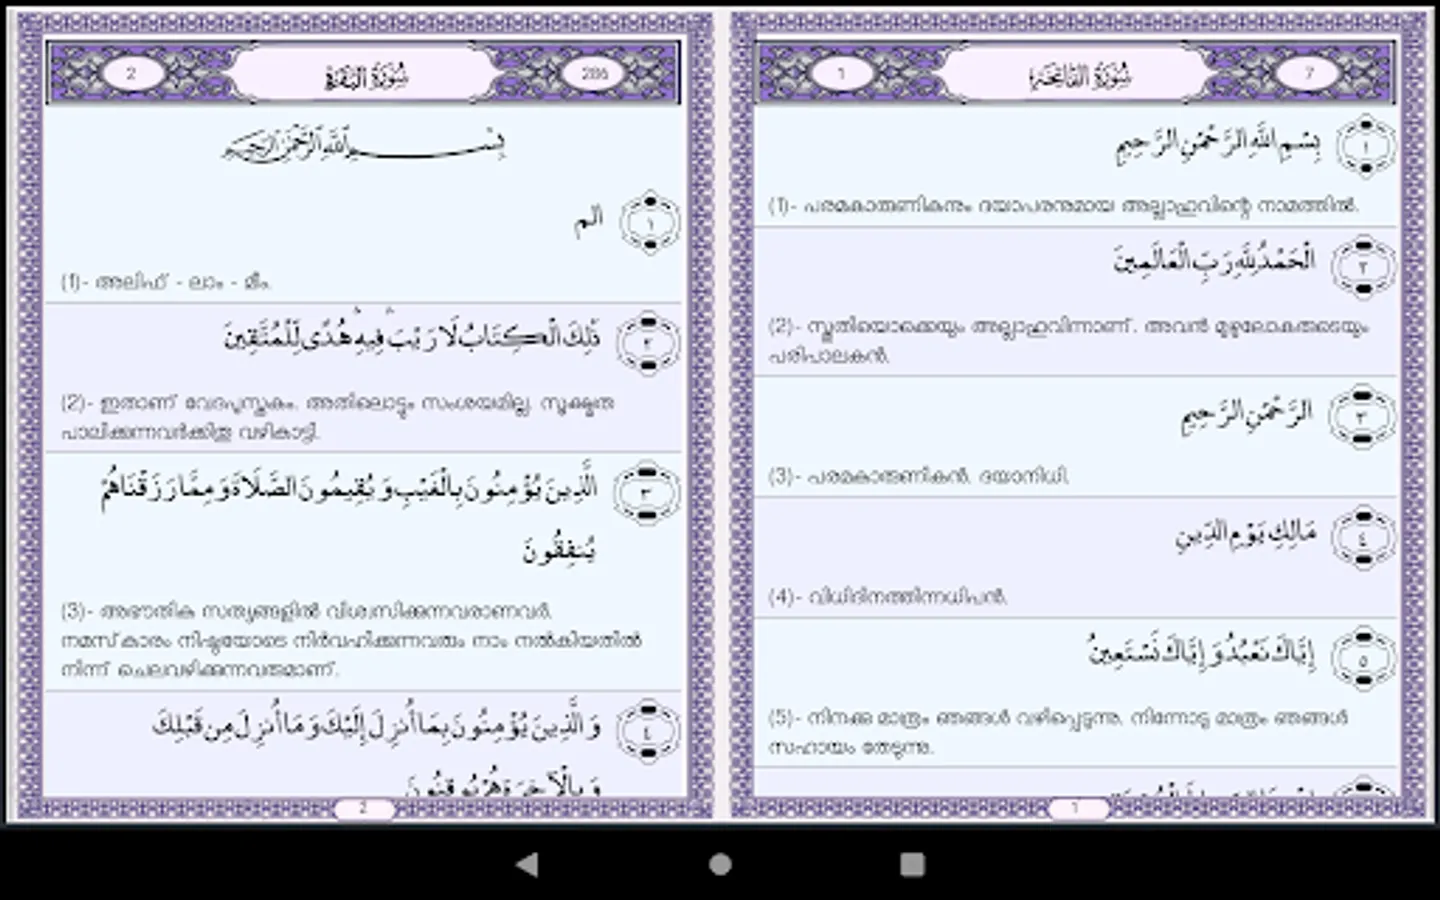 1
سُورَةُ الفَاتِحَة
7
بِسْمِ اللَّهِ الرَّحْمَٰنِ الرَّحِيمِ
١
(1)- പരമകാരുണികനും ദയാപരനുമായ അല്ലാഹുവിന്റെ നാമത്തിൽ.
الْحَمْدُ لِلَّهِ رَبِّ الْعَالَمِينَ
٢
(2)- സ്തുതിയൊക്കെയും അല്ലാഹുവിന്നാണ്. അവൻ മുഴുലോകരുടെയും
പരിപാലകൻ.
الرَّحْمَٰنِ الرَّحِيمِ
٣
(3)- പരമകാരുണികൻ. ദയാനിധി.
مَالِكِ يَوْمِ الدِّينِ
٤
(4)- വിധിദിനത്തിന്നധിപൻ.
إِيَّاكَ نَعْبُدُ وَإِيَّاكَ نَسْتَعِينُ
٥
(5)- നിനക്കു മാത്രം ഞങ്ങൾ വഴിപ്പെടുന്നു. നിന്നോടു മാത്രം ഞങ്ങൾ
സഹായം തേടുന്നു.
1
2
سُورَةُ البَقَرَة
286
بِسْمِ اللَّهِ الرَّحْمَٰنِ الرَّحِيمِ
الم
١
(1)- അലിഫ് - ലാം - മീം.
ذَٰلِكَ الْكِتَابُ لَا رَيْبَ ۛ فِيهِ ۛ هُدًى لِّلْمُتَّقِينَ
٢
(2)- ഇതാണ് വേദപുസ്തകം. അതിലൊട്ടും സംശയമില്ല. സൂക്ഷ്മത
പാലിക്കുന്നവർക്കിതു വഴികാട്ടി.
الَّذِينَ يُؤْمِنُونَ بِالْغَيْبِ وَيُقِيمُونَ الصَّلَاةَ وَمِمَّا رَزَقْنَاهُمْ
٣
يُنفِقُونَ
(3)- അഭൗതിക സത്യങ്ങളിൽ വിശ്വസിക്കുന്നവരാണവർ.
നമസ്കാരം നിഷ്ഠയോടെ നിർവഹിക്കുന്നവരും നാം നൽകിയതിൽ
നിന്ന് ചെലവഴിക്കുന്നവരുമാണ്.
وَالَّذِينَ يُؤْمِنُونَ بِمَا أُنزِلَ إِلَيْكَ وَمَا أُنزِلَ مِن قَبْلِكَ
٤
وَبِالْآخِرَةِ هُمْ يُوقِنُونَ
2